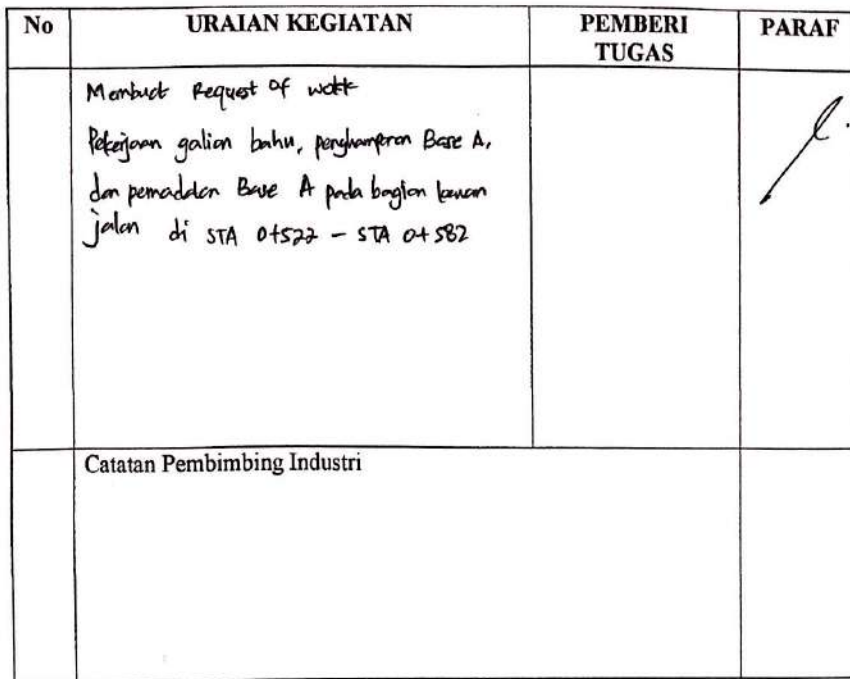 No URAIAN KEGIATAN PEMBERI TUGAS PARAF
Membuat Request of work
Pekerjaan galian bahu, penghamparan Base A,
dan pemadatan Base A pada bagian kanan
jalan di STA 0+522 - STA 0+582
Catatan Pembimbing Industri